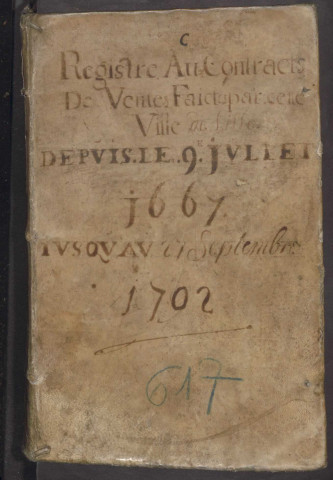 C
Registre Au Contracts
De Ventes Faicts par cette
Ville
DEPVIS.LE.9.JVLLET
1667
IVSQVAV 27 Septembre
1702
617